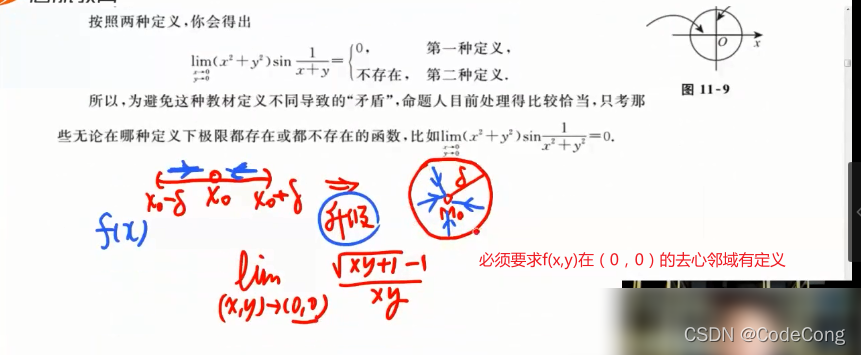 按照两种定义,你会得出
lim x→0 y→0 (x²+y²)sin 1/(x+y) = { 0, 第一种定义,
不存在, 第二种定义.
O x
图 11-9
所以,为避免这种教材定义不同导致的“矛盾”,命题人目前处理得比较恰当,只考那
些无论在哪种定义下极限都存在或都不存在的函数,比如lim x→0 y→0 (x²+y²)sin 1/(x²+y²) =0.
x₀-δ x₀ x₀+δ ⇒ 升级 δ M₀
f(x)
lim (x,y)→(0,0) (√(xy+1) -1)/(xy)
必须要求f(x,y)在(0,0)的去心邻域有定义
CSDN @CodeCong